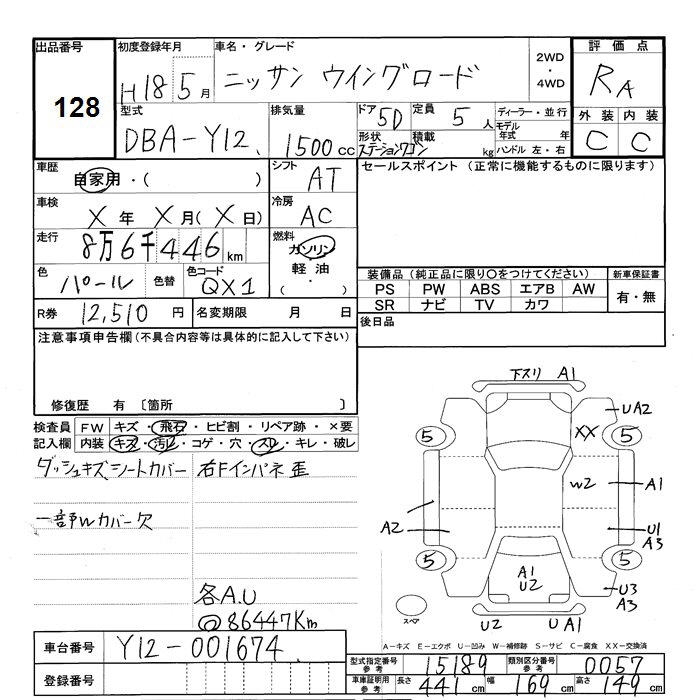 出品番号
128
初度登録年月
H18 5月
車名・グレード
ニッサン ウイングロード
2WD・4WD
評価点
RA
型式
DBA-Y12
排気量
1500cc
ドア 5D
定員 5人
形状 ステーションワゴン
積載 kg
ディーラー・並行
モデル年式 年
ハンドル 左・右
外装 内装
C C
車歴
自家用・( )
シフト
AT
セールスポイント (正常に機能するものに限ります)
車検
X年 X月(X日)
冷房
AC
走行
8万6千446km
燃料
ガソリン
軽油
( ・ )
色
パール
色替
色コード
QX1
装備品(純正品に限り○をつけてください)
新車保証書
PS PW ABS エアB AW
SR ナビ TV カワ
有・無
R券 12,510円
名変期限 月 日
後日品
注意事項申告欄(不具合内容等は具体的に記入して下さい)
修復歴 有 〔箇所 〕
検査員記入欄
FW キズ・飛石・ヒビ割・リペア跡・×要
内装 キズ・汚レ・コゲ・穴・スレ・キレ・破レ
ダッシュキズ、シートカバー
右Fインパネ歪
一部Wカバー欠
各A.U
@86447Km
下スリ A1
UA2
XX
5
5
W2
A1
A2
U1
A3
5
5
A1
U2
U3
A3
スペア
U2
U A1
A-キズ E-エクボ U-凹み W-補修跡 S-サビ C-腐食 XX-交換済
車台番号
Y12-001674
登録番号
型式指定番号 参考
15189
類別区分番号 参考
0057
車庫証明用 参考
長さ 441cm
幅 169cm
高さ 149cm